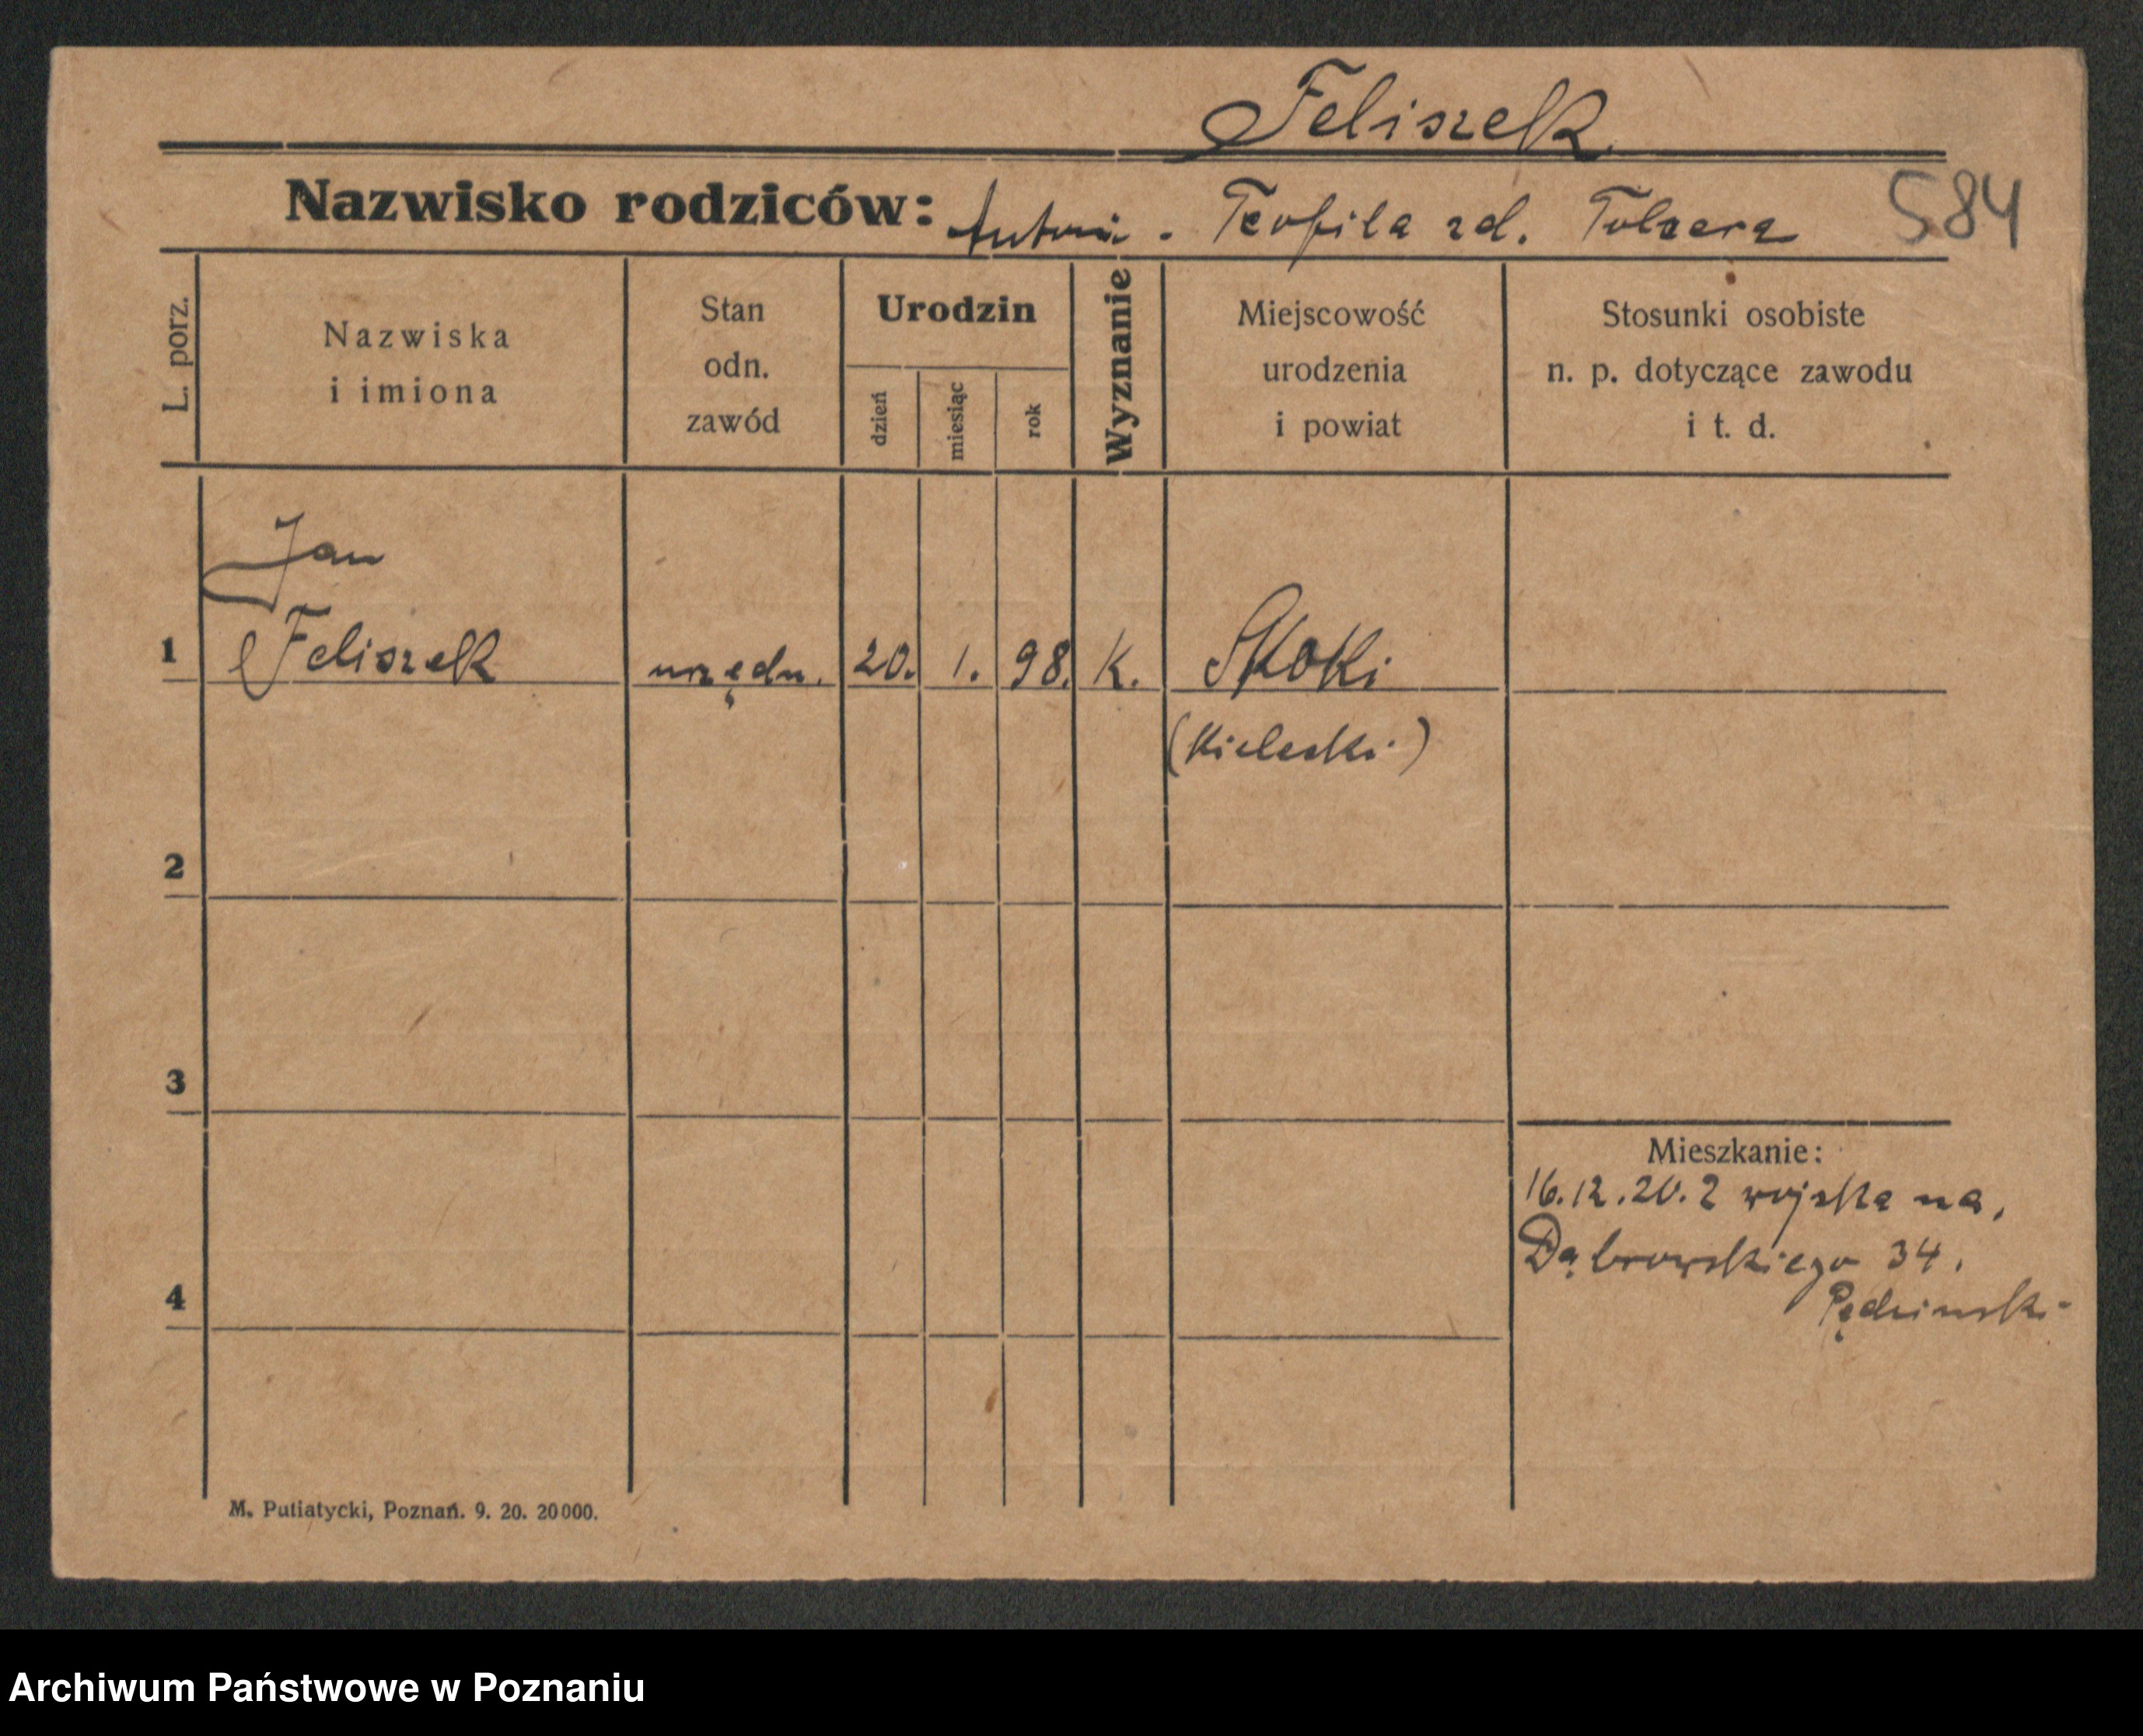 Feliszek
Nazwisko rodziców: Antoni - Teofila zd. Tolzera 584
L. porz.
Nazwiska
i imiona
Stan
odn.
zawód
Urodzin
dzień
miesiąc
rok
Wyznanie
Miejscowość
urodzenia
i powiat
Stosunki osobiste
n. p. dotyczące zawodu
i t. d.
Jan
1 Feliszek urzędn. 20. 1. 98. K. Skoki
(Kielecki)
2
3
Mieszkanie:
16.12.20. z wojska na,
Dąbrowskiego 34,
4
Pędzinski
M. Putiatycki, Poznań. 9. 20. 20000.
Archiwum Państwowe w Poznaniu